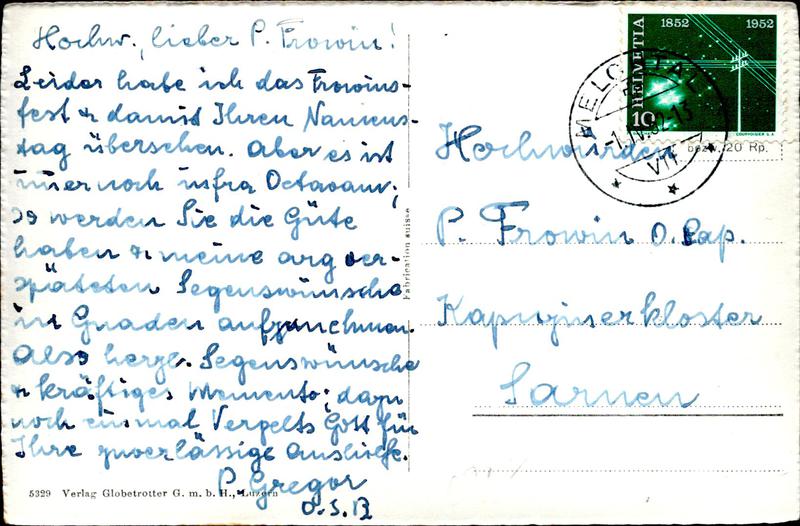 Hochw., lieber P. Frowin!
Leider habe ich das Frowins-
fest & damit Ihren Namens-
tag übersehen. Aber es ist
imer noch infra Octavam;
so werden Sie die Güte
haben & meine arg ver-
späteten Segenswünsche
in Gnaden aufzunehmen.
Also herzl. Segenswünsche
& kräftiges Memento; dazu
noch einmal Vergelts Gott für
Ihre zuverlässige Aushilfe.
P. Gregor
O.S.B
5329 Verlag Globetrotter G. m. b. H., Luzern
Fabrication suisse
1852 1952
HELVETIA
10
COURVOISIER S.A.
MELCHTAL
-1.IV.52-13
VII
bezw. 20 Rp.
Hochwürden
P. Frowin O. Cap.
Kapuzinerkloster
Sarnen